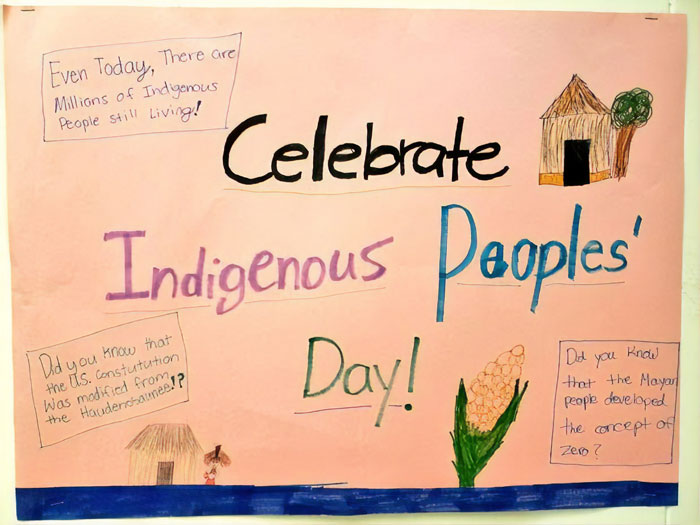 Even Today, There are
Millions of Indigenous
People still Living!
Celebrate
Indigenous Peoples'
Day!
Did you know that
the U.S. Constutution
was modified from
the Haudenosaunee!?
Did you know
that the Mayan
people developed
the concept of
zero?